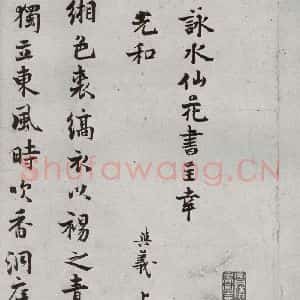 詠水仙花書呈幸
光和
與義上
緗色裘縞衣以裼之青
獨立東風時吹香洞庭
Shufawang.CN